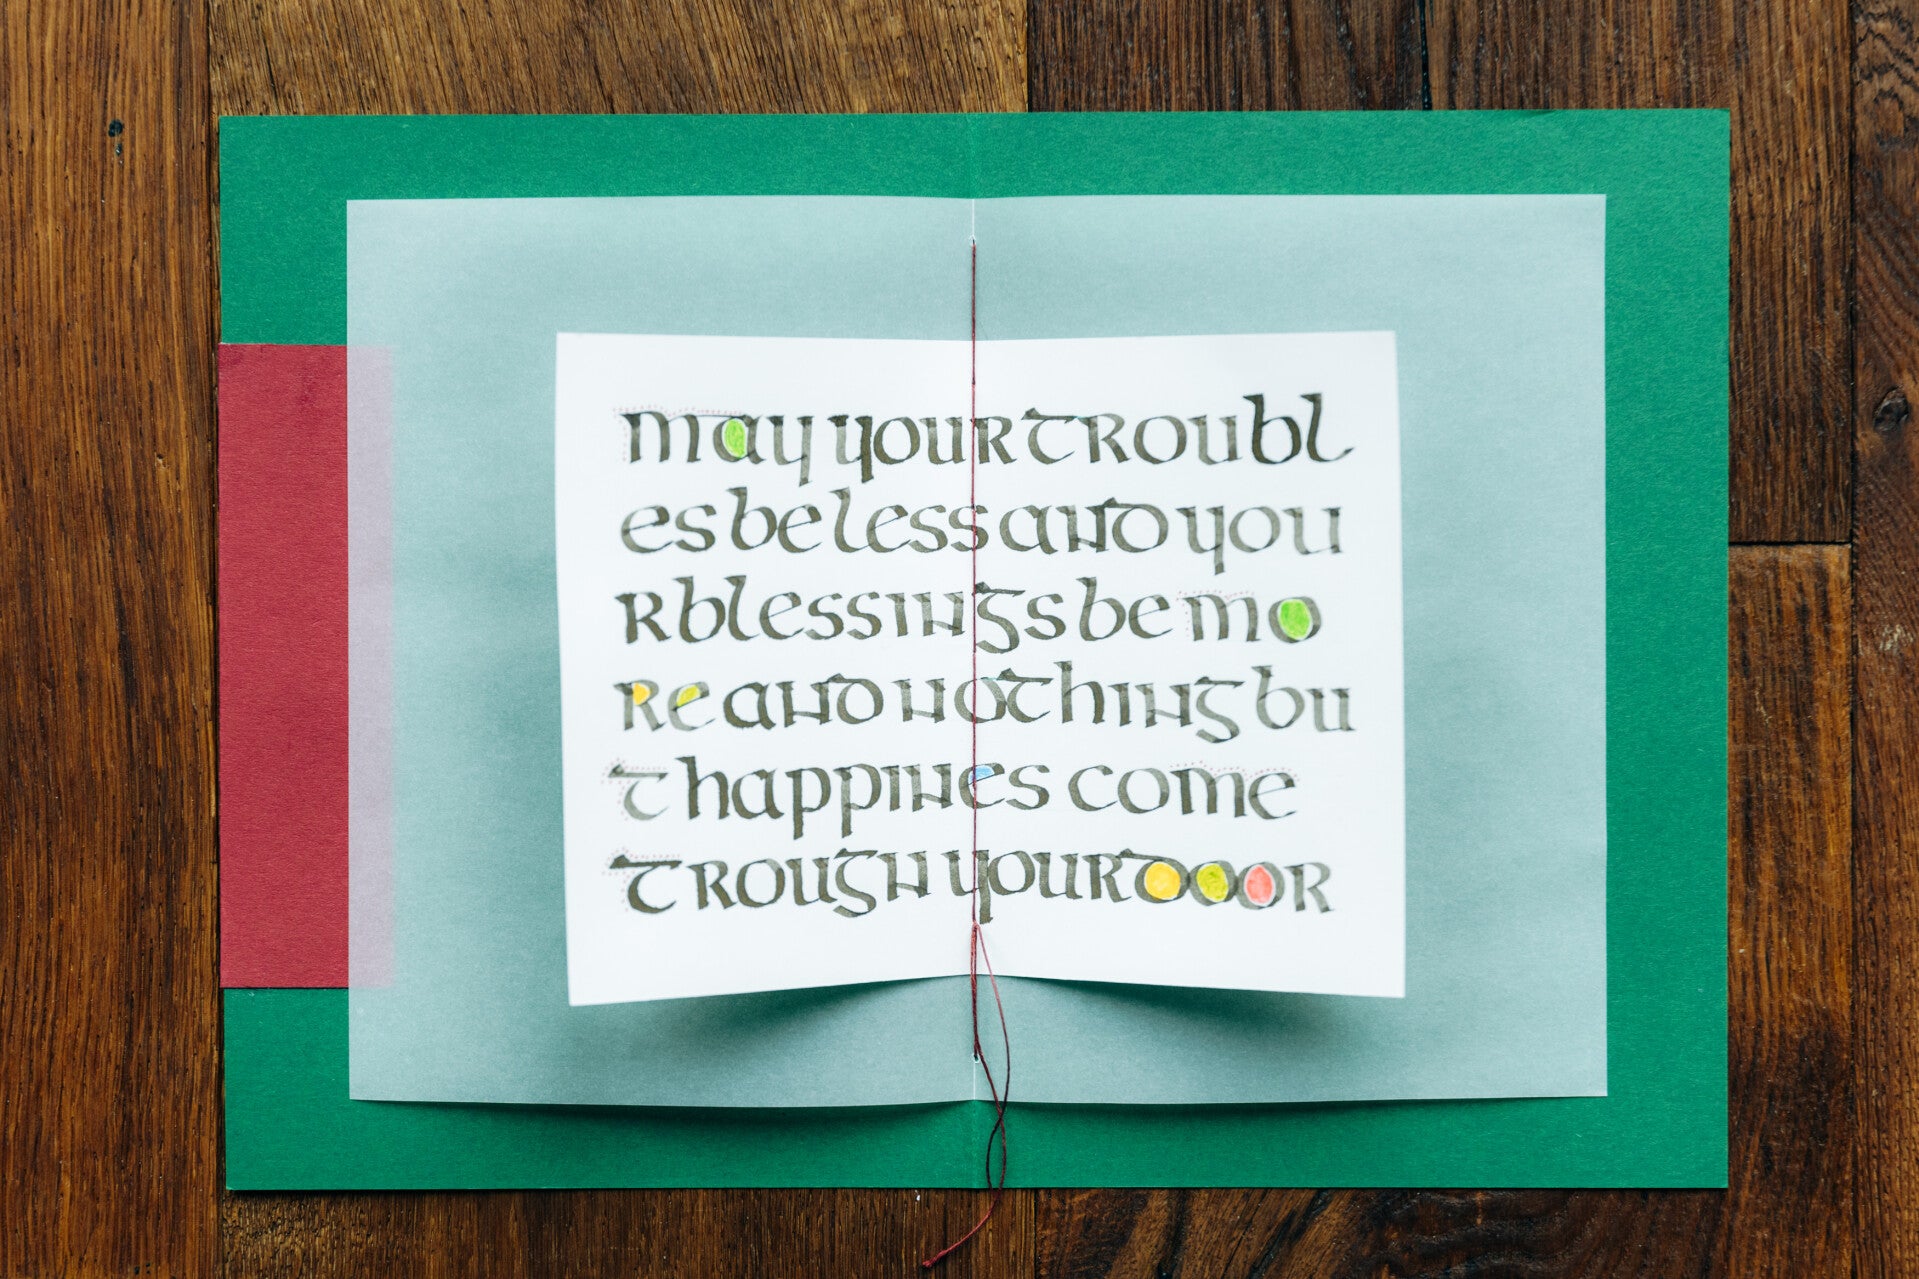 may your troubl
es be less and you
r blessings be mo
re and nothing bu
t happines come
trough your dooor